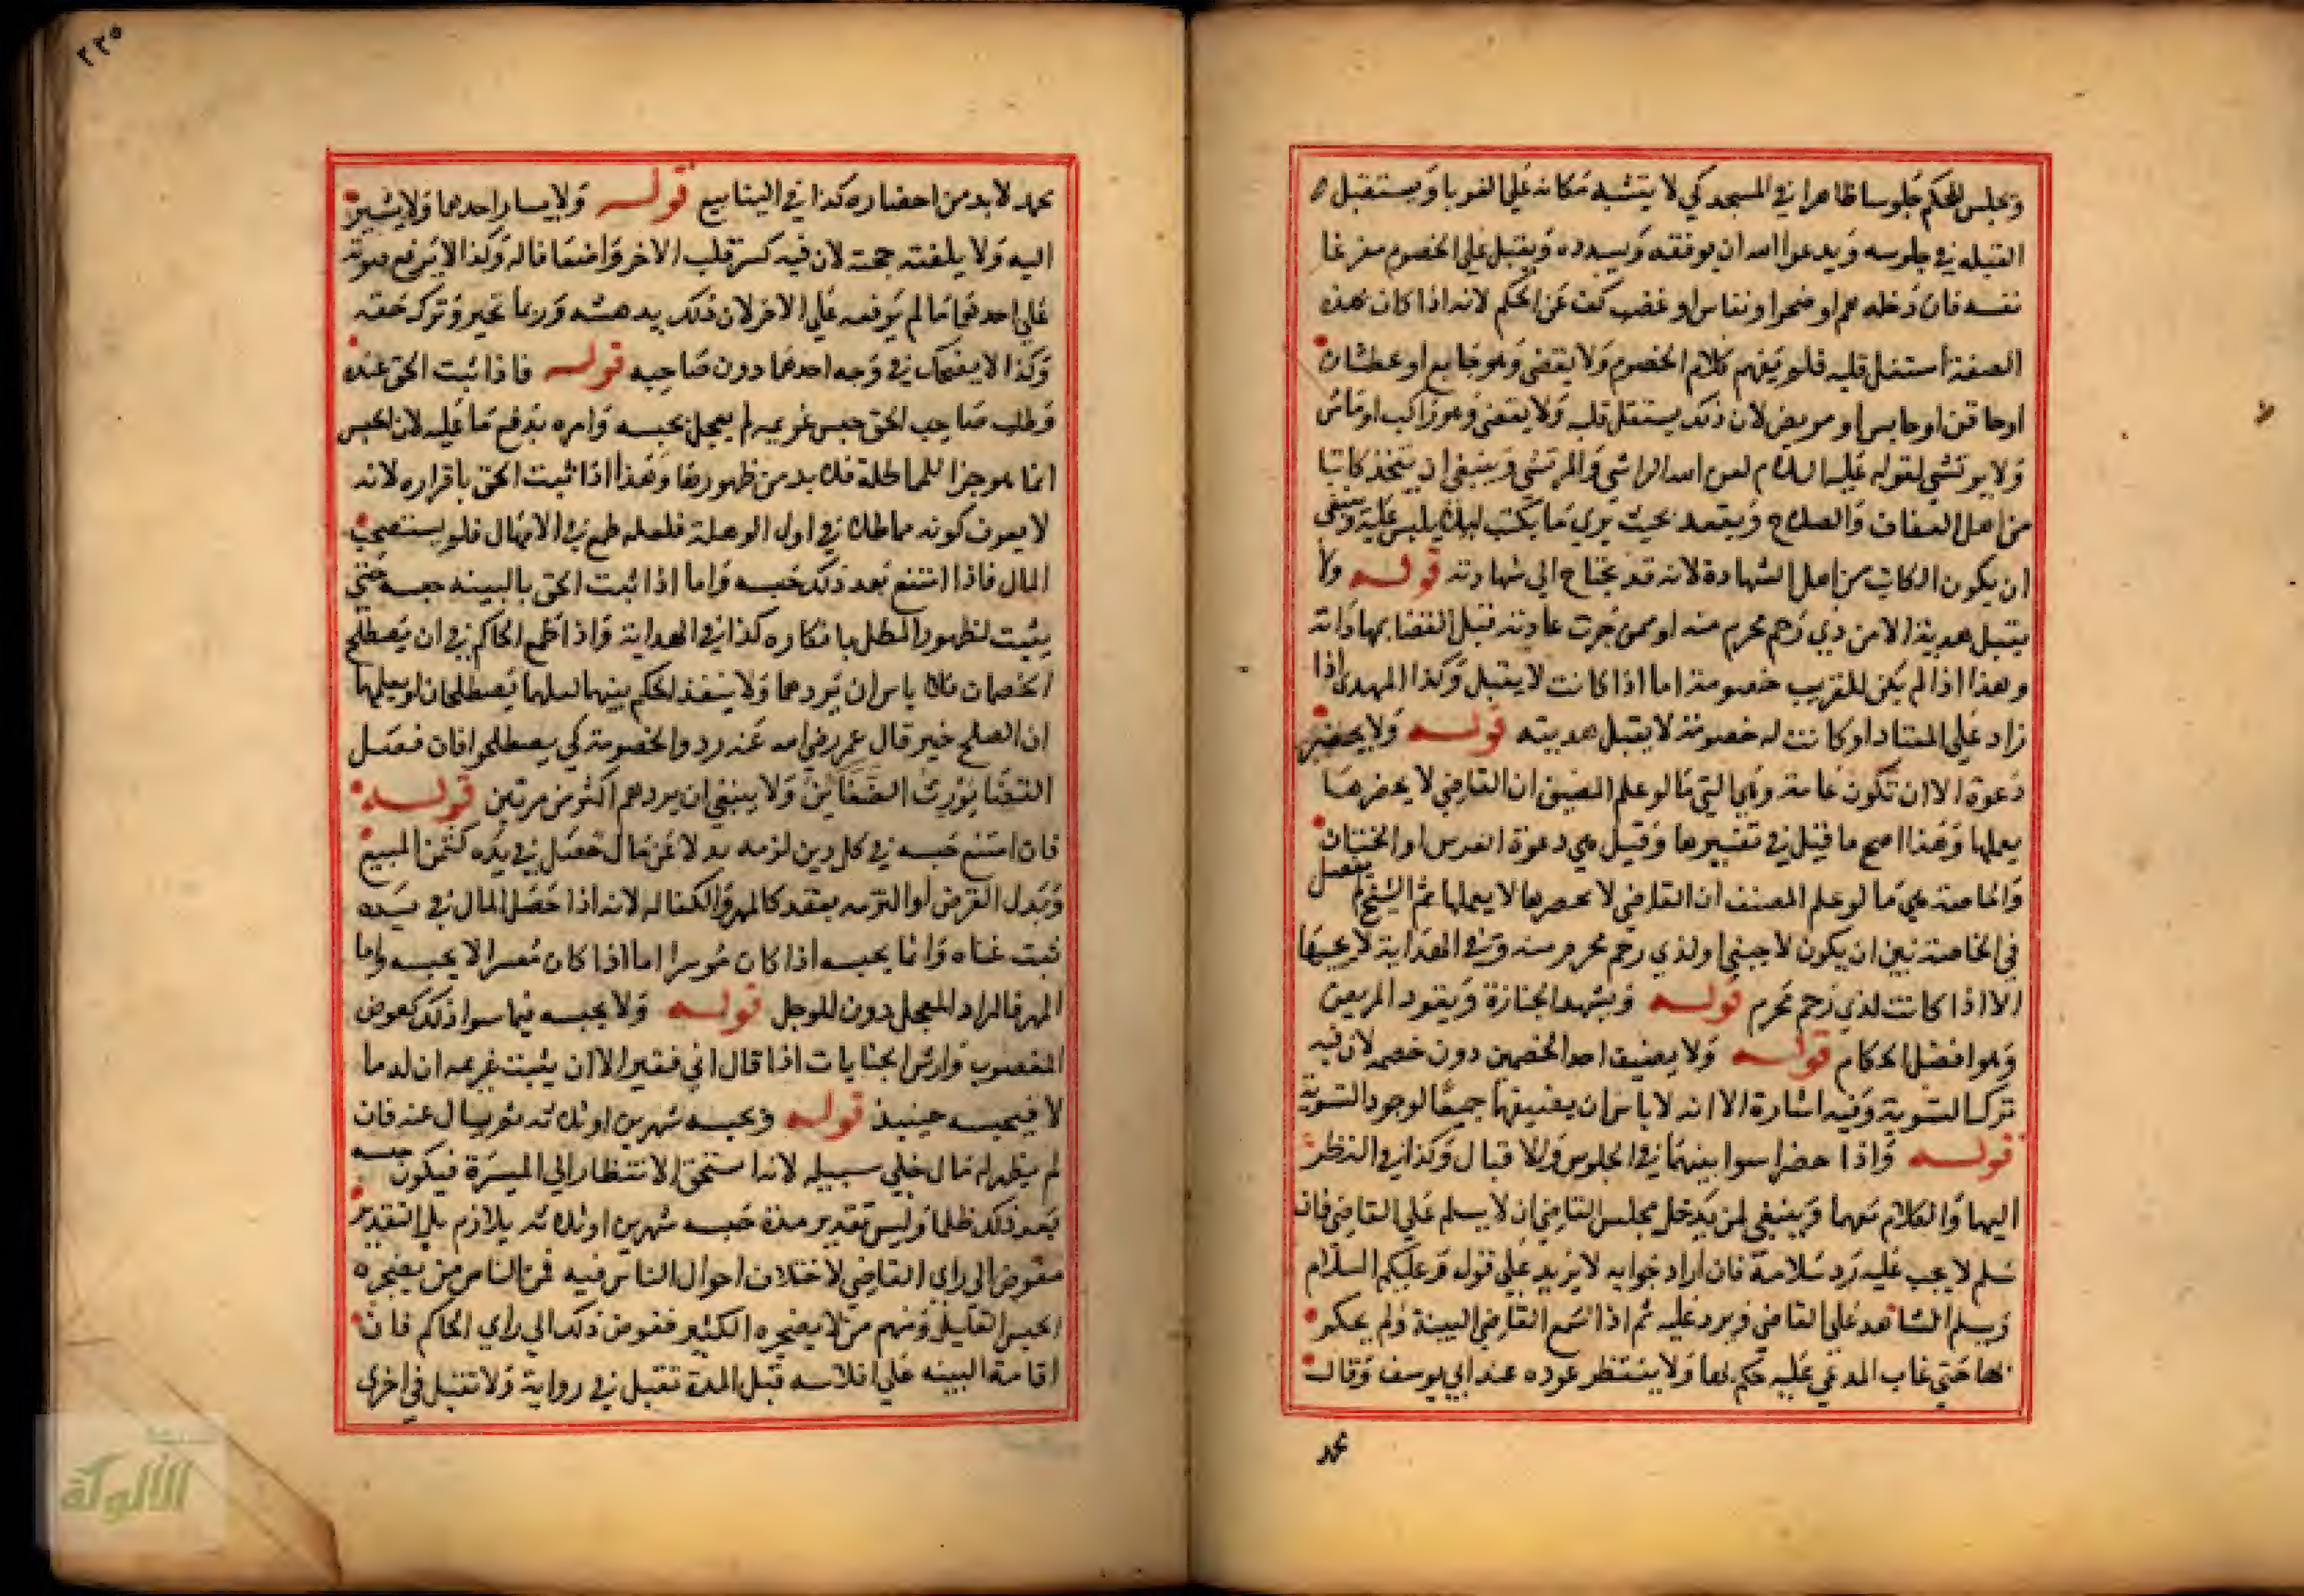 ويجلس للحكم جلوسا ظاهرا في المسجد كي لا يشتبه مكانه علي الغربا ويستقبل
القبله في جلوسه ويدعوا الله ان يوفقه ويسدده ويقبل علي الخصوم مفرغا
نفسه فان دخله هم او ضجرا ونعاس او غضب كف عن الحكم لانه اذا كان بهذه
الصفة أستغل قلبه فلم يفهم كلام الخصوم ولا يقضي وهو جايع او عطشان
او حاقن او حابس او مريض لان ذلك يشتغل قلبه ولا يقضي وهو راكب او ماش
ولا يرتشي لقوله عليه السلام لعن الله الراشي والمرتشي وينبغي ان يتخذ كاتبا
من اهل العفاف والصلاح ويقعد بحيث يري ما يكتب ليلا يلبس عليه وينبغي
ان يكون الكاتب من اهل الشهادة لانه قد يحتاج الي شهادته قوله ولا
يقبل هدية الا من ذي رحم محرم منه او ممن جرت عادته قبل القضا بمهاداته
وهذا اذا لم يكن للقريب خصومة اما اذا كانت لا يقبل وكذا المهدي اذا
زاد علي المعتاد او كانت له خصومة لا يقبل هديته قوله ولا يحضر
دعوة الا ان تكون عامة وهي التي ما لو علم المضيف ان القاضي لا يحضرها
يعملها وهذا اصح ما قيل في تفسيرها وقيل هي دعوة العرس او الختان
والخاصة هي ما لو علم المصنف ان القاضي لا يحصرها لا يعملها ثم الشيخ لم يفصل
في الخاصة بين ان يكون لاجنبي او لذي رحم محرم منه وفي الهداية لا يجيبها
الا اذا كانت لذي رحم محرم قوله ويشهد الجنازة ويعود المريض
وهو افضل الحكام قوله ولا يضيف احد الخصمين دون خصمه لان فيه
ترك التسوية وفيه اشارة الا انه لا باس ان يضيفهما جميعا لوجود التسوية
قوله واذا حضرا سوا بينهما في الجلوس والاقبال وكذا في النظر
اليهما والكلام معهما وينبغي لمن يدخل مجلس القاضي ان لا يسلم علي القاضي فان
سلم لا يجب عليه رد سلامة فان اراد جوابه لا يزيد علي قوله وعليكم السلام
ويسلم الشاهد علي القاضي ويرد عليه ثم اذا سمع القاضي البينة ولم يحكم
بها حتي غاب المدعي عليه حكم بها ولا ينتظر عوده عند ابي يوسف وقال
محمد
٢٢٥
محمد لا بد من احضاره كذا في الينابيع قوله ولا يسار احدهما ولا يشير
اليه ولا يلقنه حجة لان فيه كسر قلب الاخر واضعافا له وكذا لا يرفع صوته
علي احدهما ما لم يرفعه علي الاخر لان ذلك يدهشه وربما تحير وترك حقه
وكذا لا يضحك في وجه احدهما دون صاحبه قوله فاذا ثبت الحق عنده
وطلب صاحب الحق حبس غريمه لم يعجل بحبسه وامره بدفع ما عليه لان الحبس
انما هو جزا للمماطلة فلا بد من ظهورها وهذا اذا ثبت الحق باقراره لانه
لا يعرف كونه مماطلا في اول الوهلة فلعله طمع في الامهال فلم يستصحب
المال فاذا امتنع بعد ذلك حبسه واما اذا ثبت الحق بالبينه حبسه حتي
يثبت لظهور المطل بانكاره كذا في الهداية واذا طمع الحاكم في ان يصطلح
الخصمان فلا باس ان يردهما ولا ينفذ الحكم بينهما لعلهما يصطلحان او يعلمهما
ان الصلح خير قال عمر رضي الله عنه ردوا الخصومة كي يصطلحوا فان فصل
القضا يورث الضغائن ولا ينبغي ان يردهم اكثر من مرتين قوله
فان امتنع حبسه في كل دين لزمه بدلا عن مال حصل في يده كثمن المبيع
وبدل القرض او التزمه بعقد كالمهر والكفالة لانه اذا حصل المال في يده
ثبت غناه وانما يحبسه اذا كان موسرا اما اذا كان معسرا لا يحبسه واما
المهر فالمراد المعجل دون الموجل قوله ولا يحبسه فيما سوا ذلك كعوض
المغصوب وارش الجنايات اذا قال اني فقير الا ان يثبت غريمه ان له ما
لا فيحبسه حينيذ قوله ويحبسه شهرين او ثلاثه ثم يسال عنه فان
لم يظهر له مال خلي سبيله لانه استحق الانتظار الي الميسرة فيكون حبسه
بعد ذلك ظلما وليس تقدير مدة حبسه شهرين او ثلاثه بلازم بل التقدير
مفوض الي راي القاضي لاختلاف احوال الناس فيه فمن الناس من يضجره
الحبس القليل ومنهم من لا يضجره الكثير ففوض ذلك الي راي الحاكم فان
اقامة البينه علي افلاسه قبل المدة تقبل في رواية ولا تقبل في اخري
الألوكة